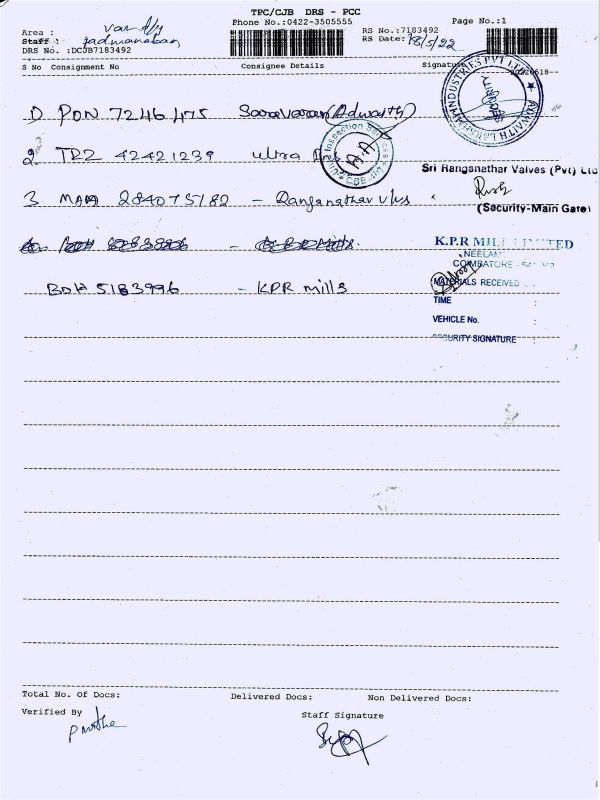 TPC/CJB DRS - PCC
Phone No.:0422-3505555
Page No.:1
Area :
Staff : Padmanaban
DRS No. :DCJB7183492
RS No.:7183492
RS Date: 18/5/22
S No Consignment No Consignee Details Signature
1) PON 7246475 Saravanan (Adwaith)
2 TRZ 42421239 ultra
Inspection
CBE
AA
3 MAA 284075182 - Ranganathar vlvs
Sri Ranganathar Valves (Pvt) Ltd
(Security-Main Gate)
ADWAITH LAKSHMI INDUSTRIES PVT LTD
SECURITY
BDH 5183996 - KPR mills
K.P.R MILL LIMITED
COIMBATORE
MATERIALS RECEIVED
TIME :
VEHICLE No. :
SECURITY SIGNATURE :
Total No. Of Docs: Delivered Docs: Non Delivered Docs:
Verified By
Staff Signature